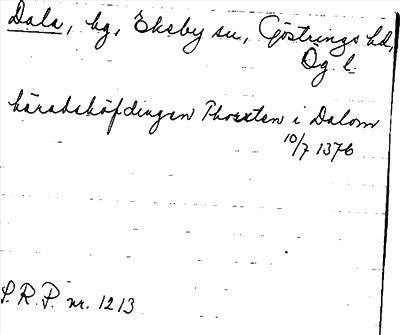 Dala, hg, Ekeby sn, Göstrings hd,
Ög l.
häradshöfdingen Thorsten i Dalom
10/7 1376
S.R.P. nr. 1213